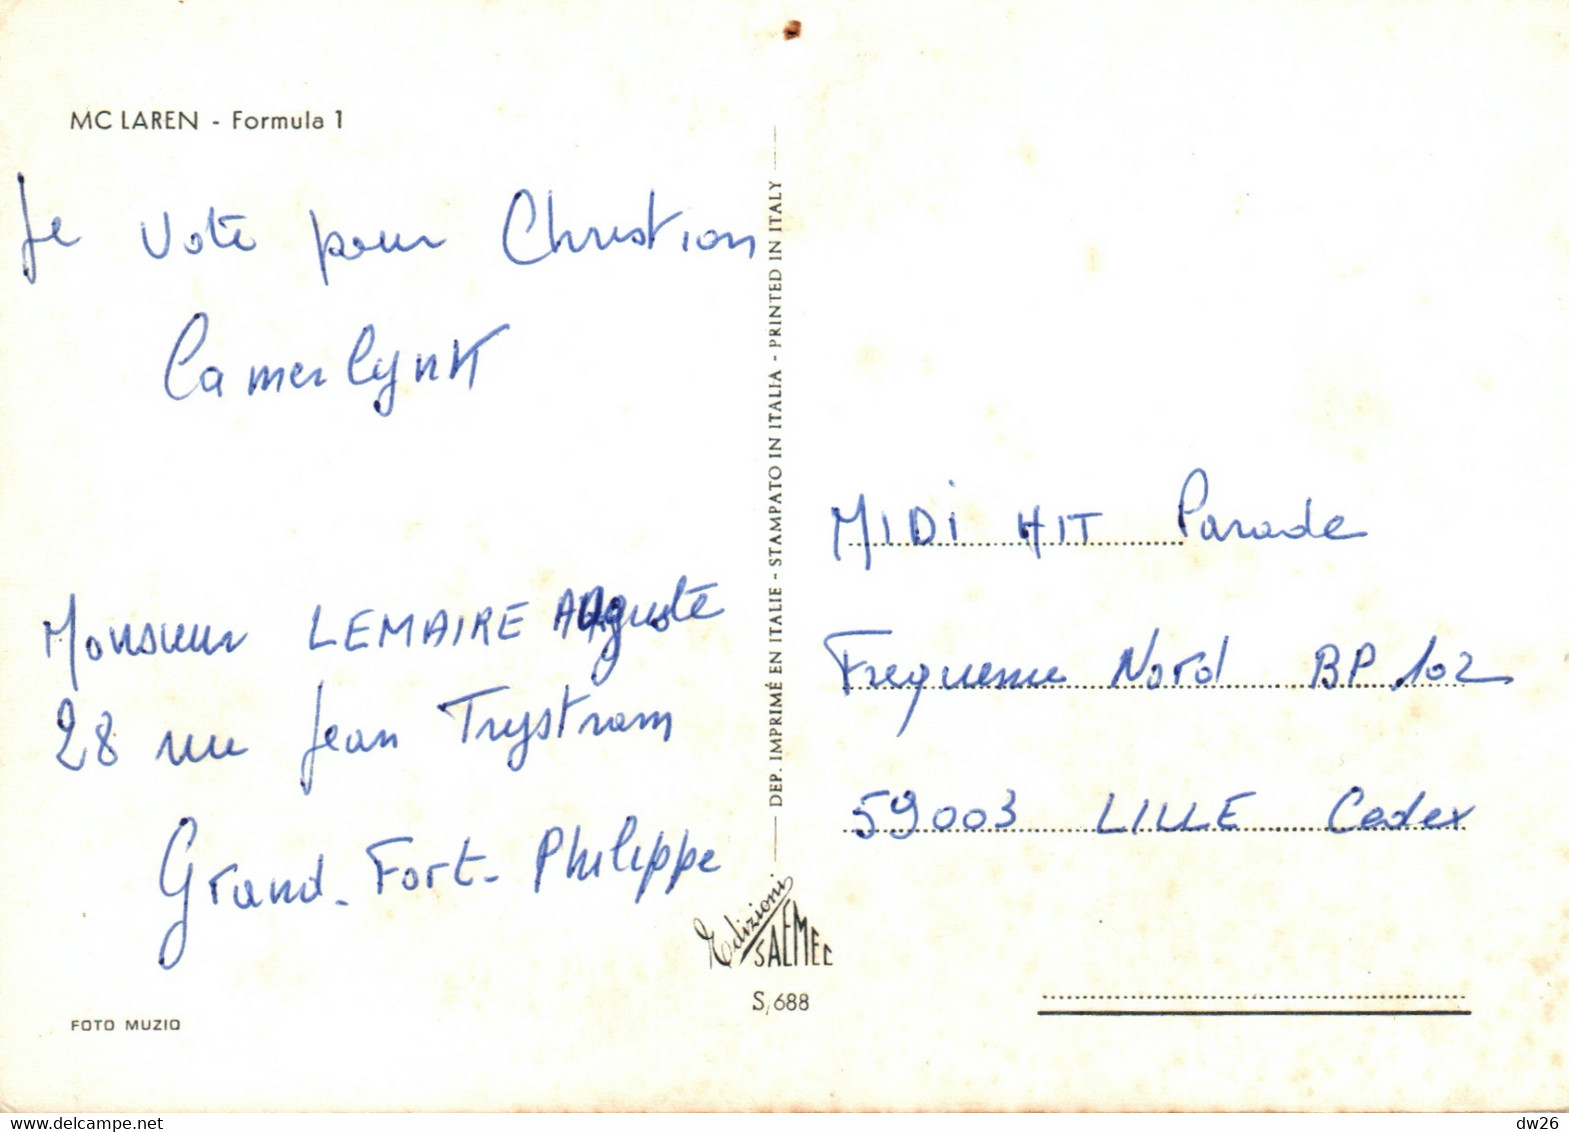 MC LAREN - Formula 1
Je vote pour Christian
Camerlynk
Monsieur LEMAIRE Auguste
28 rue Jean Trystram
Grand-Fort-Philippe
FOTO MUZIO
DEP. IMPRIMÉ EN ITALIE - STAMPATO IN ITALIA - PRINTED IN ITALY
Edizioni
SAEMEC
S/688
MIDi HIT Parade
Frequence Nord BP 102
59003 LILLE Cedex
www.delcampe.net
dw26